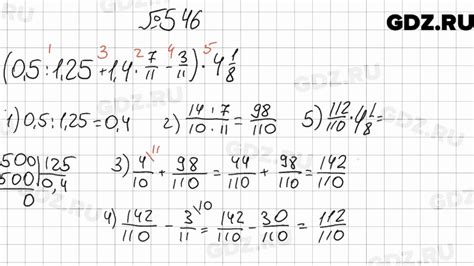 №546
GDZ.RU
(0,5:1,25+1,4·7/11−3/11)·4 1/8
1 3 2 4 5
1) 0,5:1,25=0,4 2) 14·7/10·11=98/110 5) 112/110·4 1/8=
500 125
500 0,4
0
3) 4/10\11+98/110=44/110+98/110=142/110
4) 142/110−3/11\10=142/110−30/110=112/110